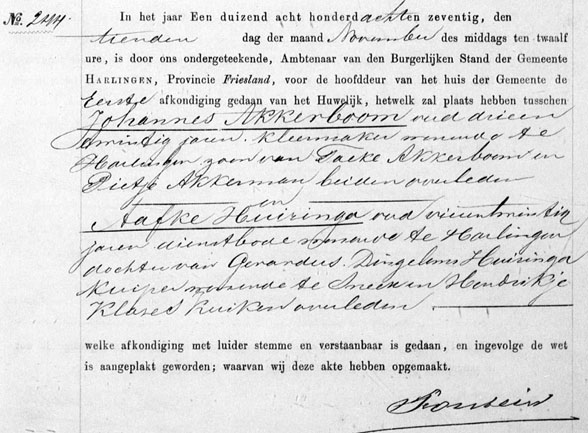 No. 244.
In het jaar Een duizend acht honderd achten zeventig, den
tienden dag der maand November des middags ten twaalf
ure, is door ons ondergeteekende, Ambtenaar van den Burgerlijken Stand der Gemeente
HARLINGEN, Provincie Friesland, voor de hoofddeur van het huis der Gemeente de
Eerste afkondiging gedaan van het Huwelijk, hetwelk zal plaats hebben tusschen
Johannes Akkerboom oud drieen
twintig jaren kleermaker wonende te
Harlingen zoon van Taeke Akkerboom en
Pietje Akkerman beiden overleden
en
Aafke Huiringa oud vierentwintig
jaren dienstbode wonende te Harlingen
dochter van Gerardus Huiringa
kuiper wonende te Sneek en Hendrikje
Klases Kuiken overleden
welke afkondiging met luider stemme en verstaanbaar is gedaan, en ingevolge de wet
is aangeplakt geworden; waarvan wij deze akte hebben opgemaakt.
Fontein